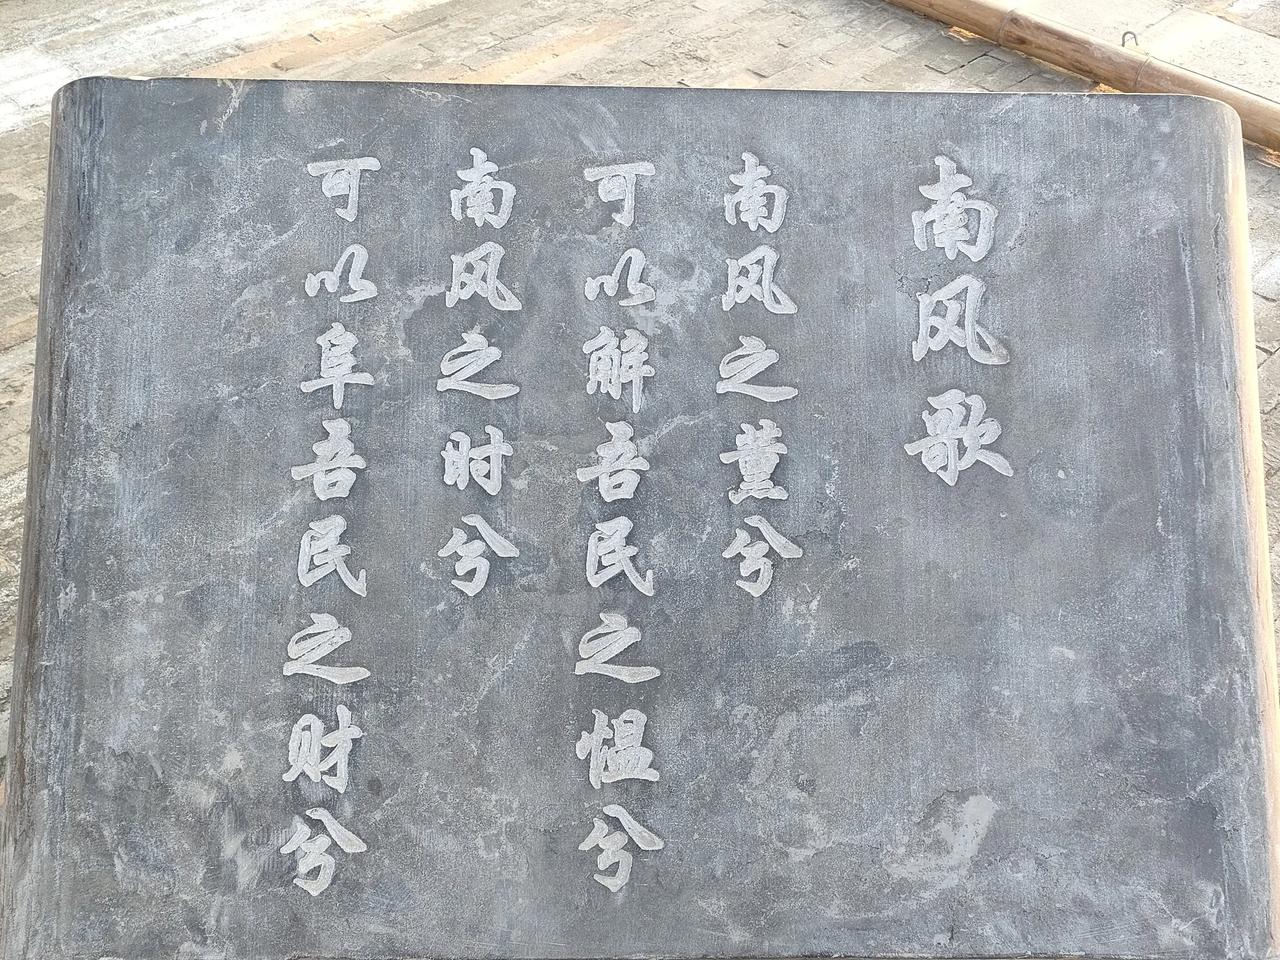 南风歌
南风之薰兮
可以解吾民之愠兮
南风之时兮
可以阜吾民之财兮